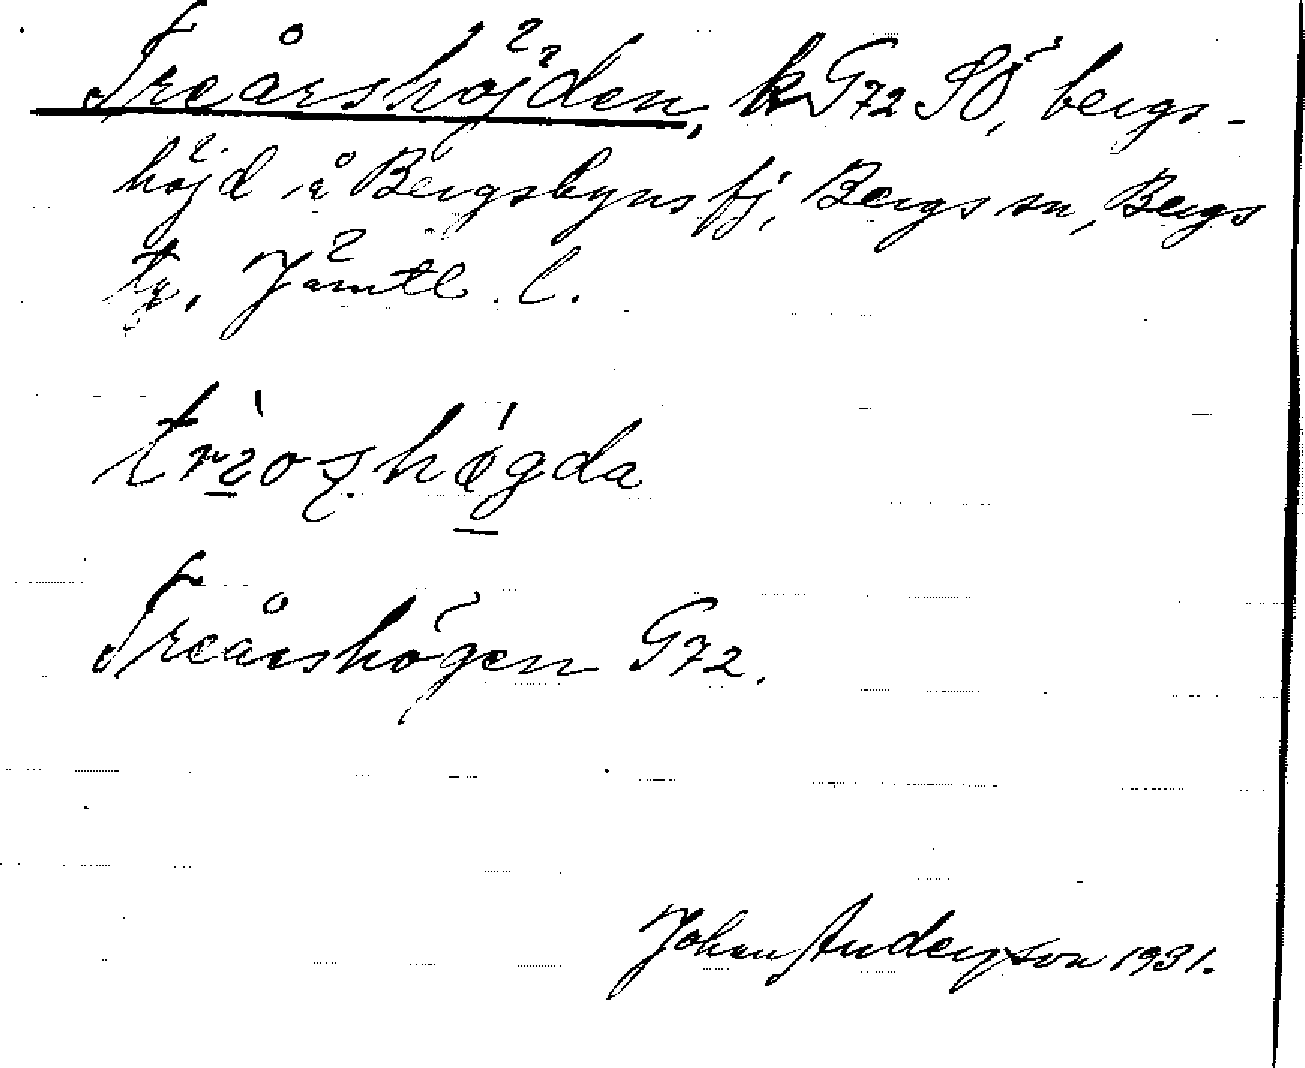 Treårshöjden, k G72 SÖ, bergs-
höjd å Bergsbyns fj, Bergs sn, Bergs
tg. Jämtl. l.
Treårshögen G72.
Johan Anderson 1931.